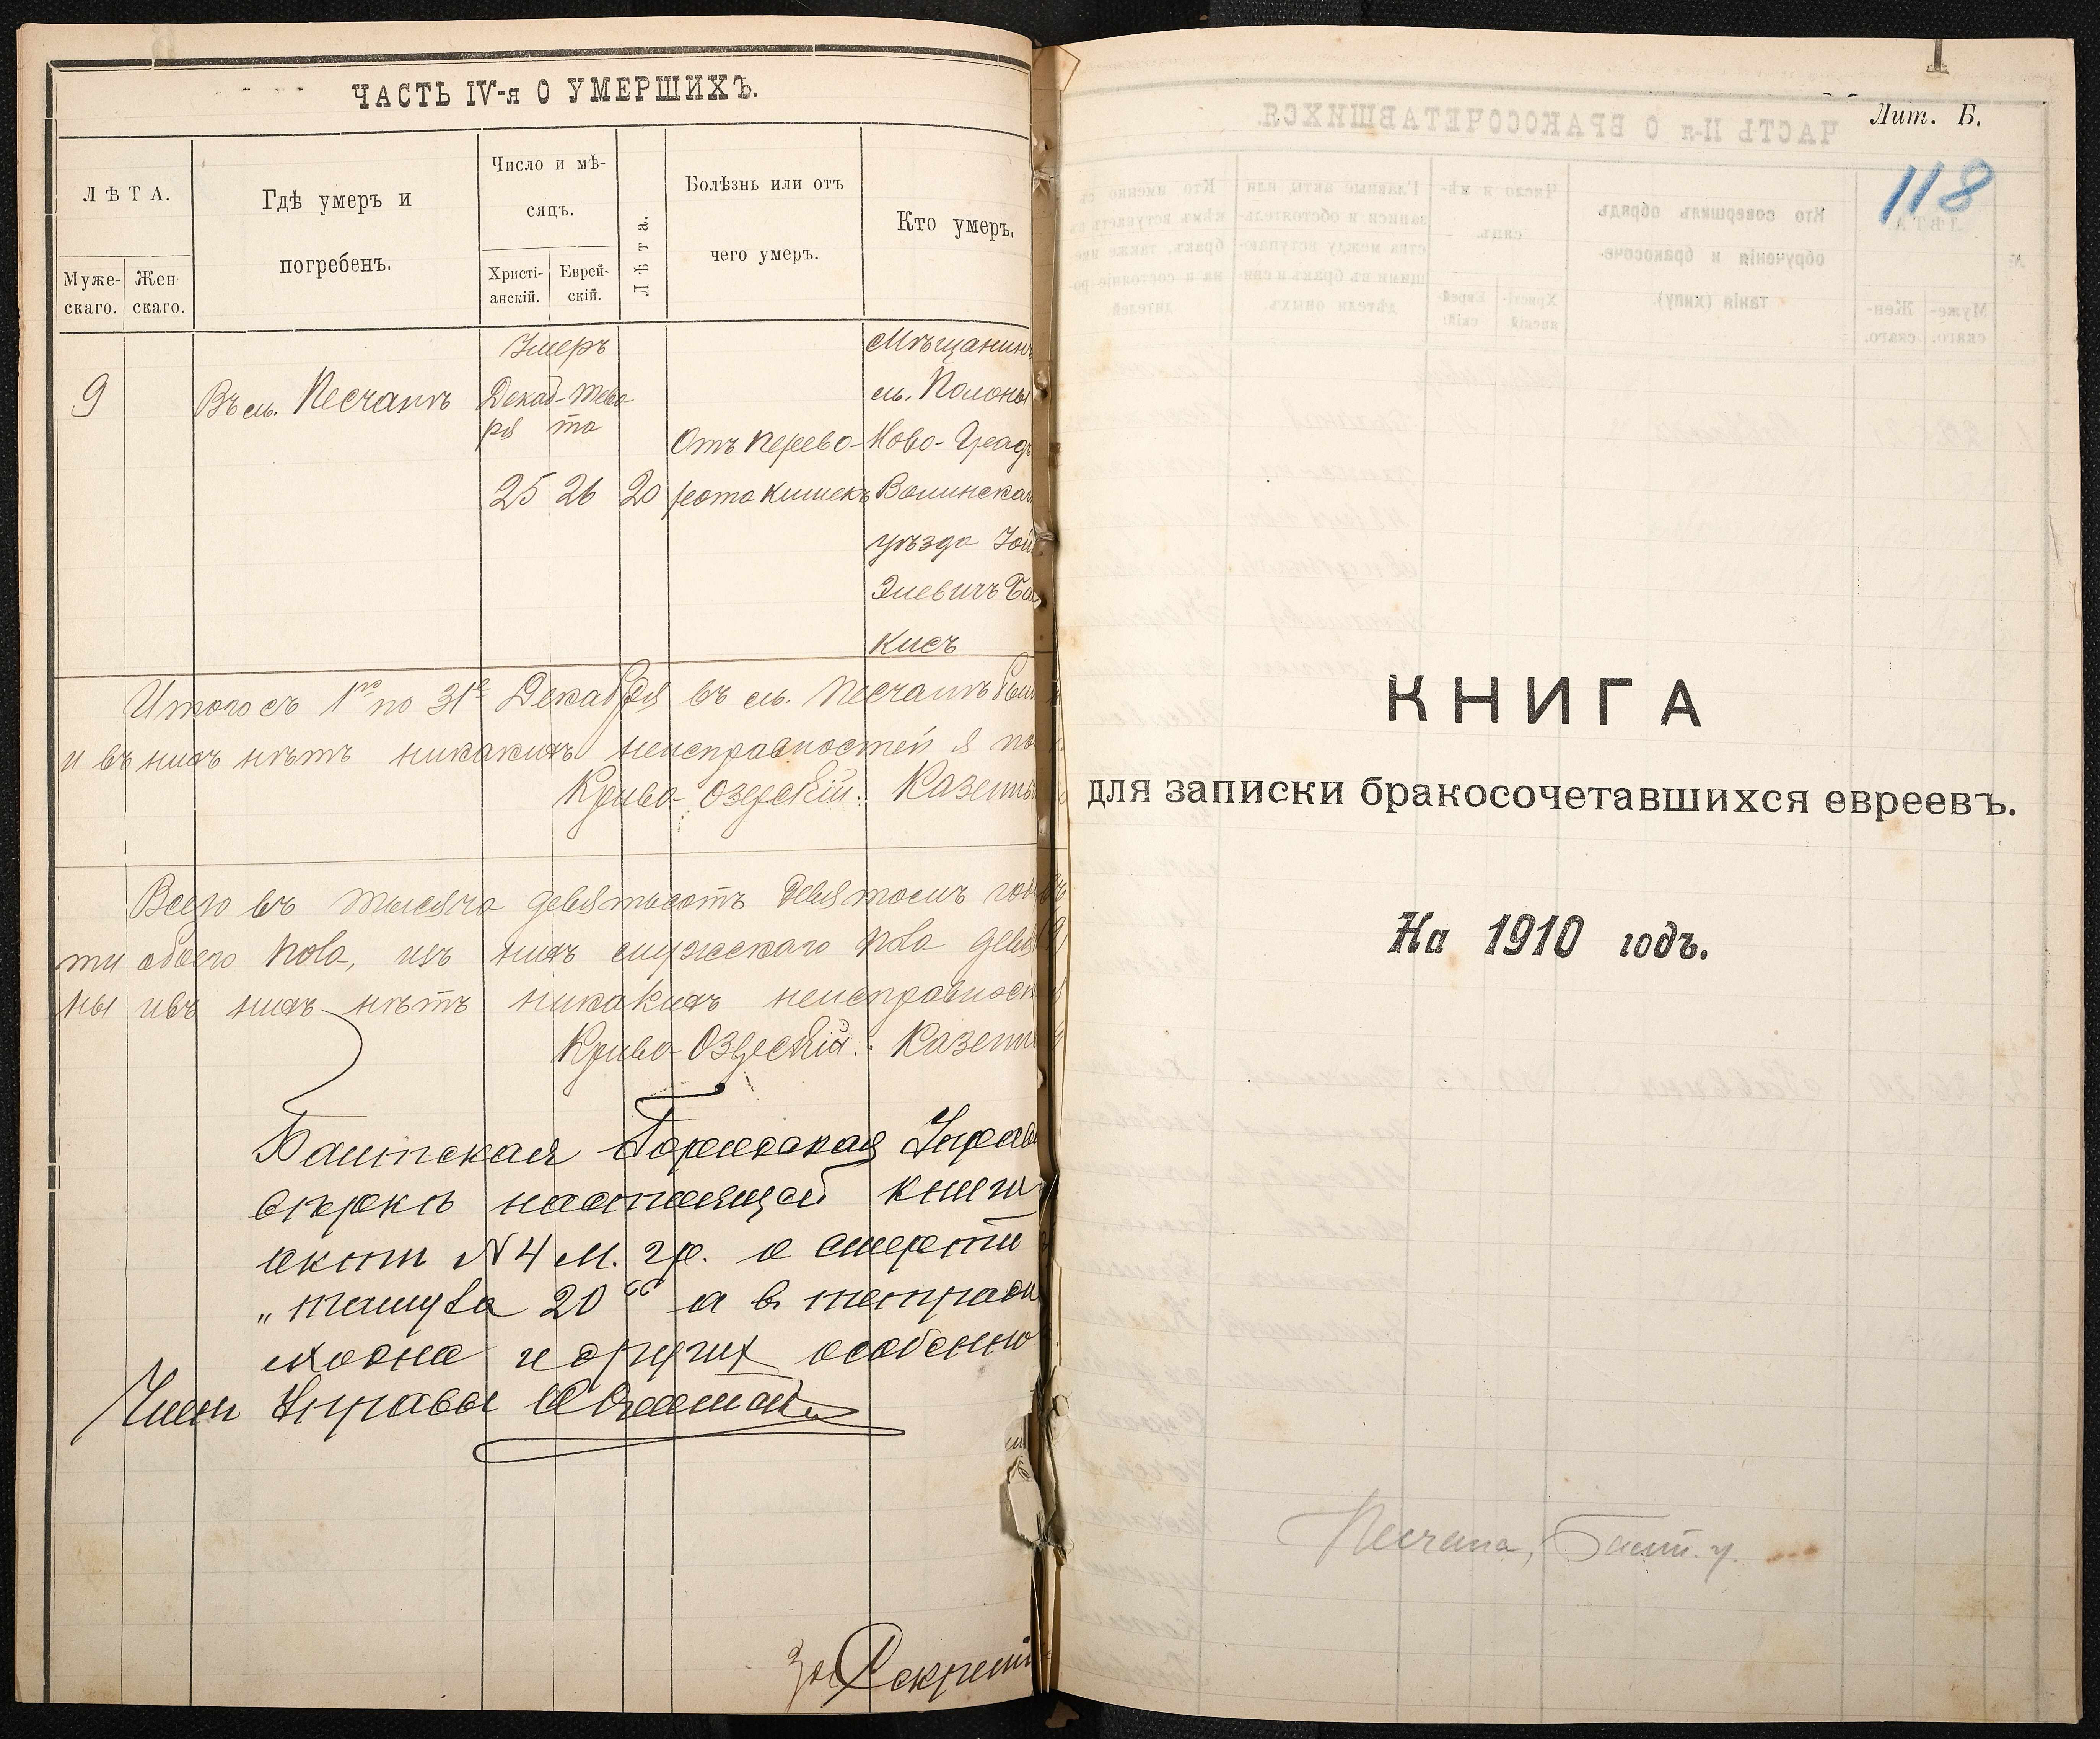 ЧАСТЬ IV-я О УМЕРШИХЪ.
ЛѢТА.
Муже-скаго.
Жен скаго.
Гдѣ умеръ и
погребенъ.
Число и мѣ-
сяцъ.
Христі-анскій.
Еврей-скій.
Лѣта.
Болѣзнь или отъ
чего умеръ.
Кто умеръ.
9
Въ м. Песчанѣ
Умеръ
Декаб- Теве-
ря та
25 26 20
Отъ перево-
рота кишекъ
Мѣщанинъ
м. Полоны
Ново-Град
Волинскаго
уѣзда Іой
Элевичъ Ба
кисъ
Итого съ 1го по 31е Декабря въ м. Песчанѣ
и въ нихъ нѣтъ никакихъ неисправностей я по
Криво-Озерскій: Казенны
Всего въ тысяча девятьсотъ девятомъ год
ти обоего пола, изъ нихъ мужескаго пола девя
ны и въ нихъ нѣтъ никакихъ неисправност
Криво-Озерскій: Казенн
Балтская Городская Управ
вѣркѣ настоящей книги
актъ N 4 м. гр. о смерти
20" а в тетради
и других особенно
Член Управы
За Секрет
Лит. Б.
118
КНИГА
для записки бракосочетавшихся евреевъ.
На 1910 годъ.
Песчана, Балт. у.